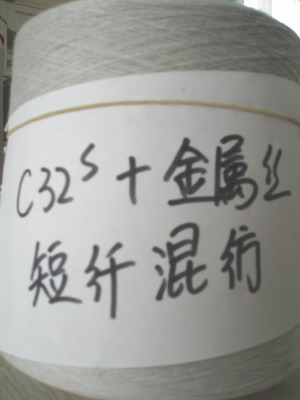 C32ˢ+金属丝
短纤混纺